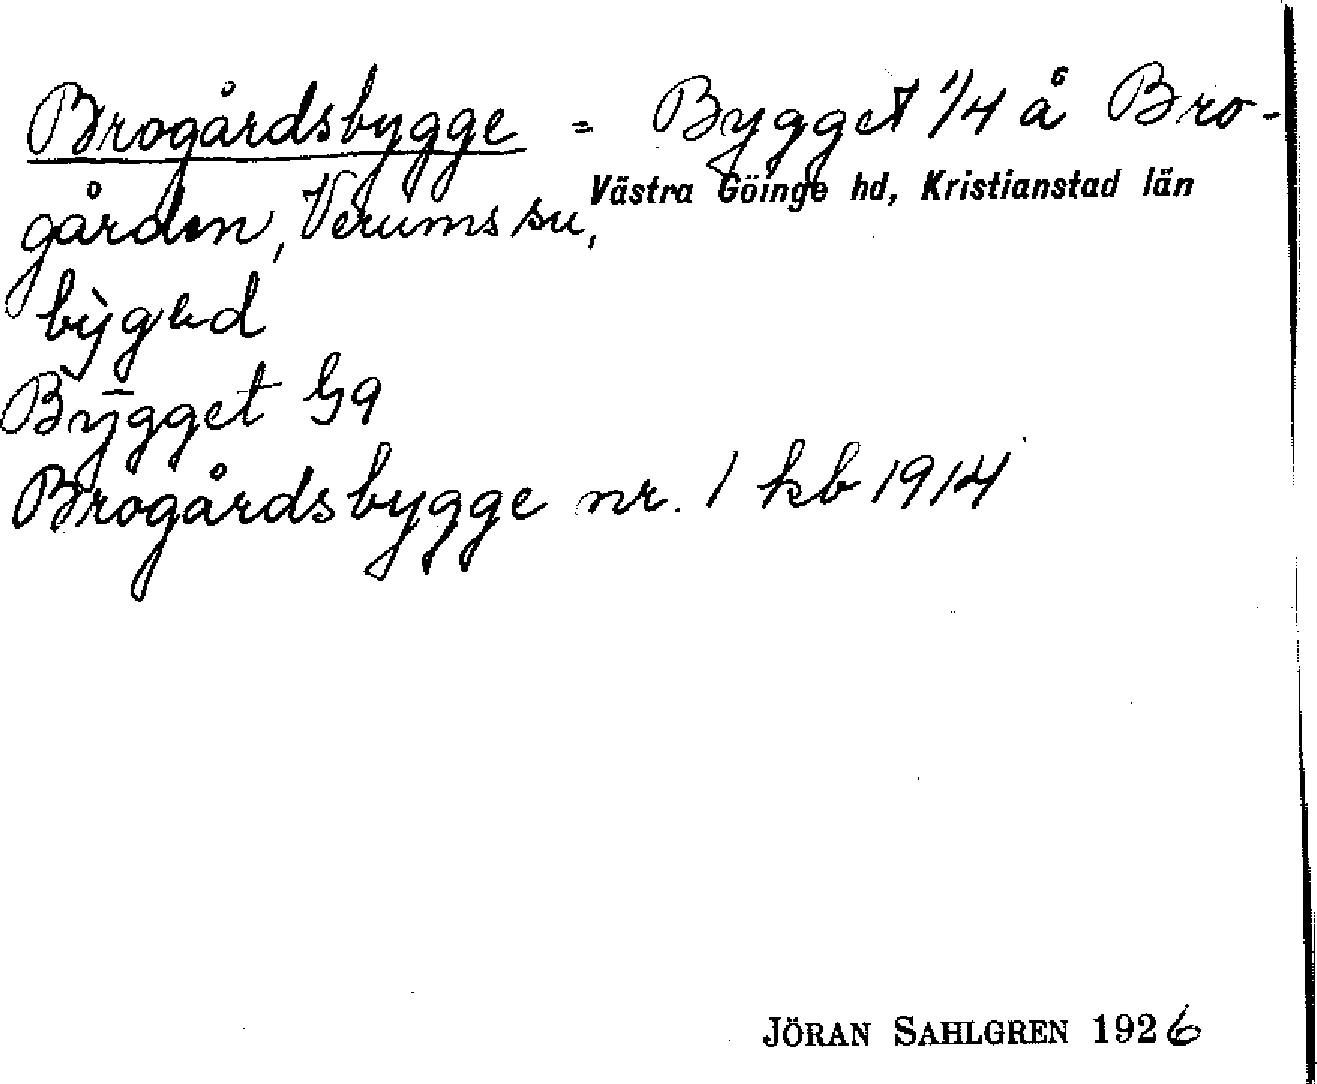 Brogårdsbygge = Bygget 1/4 å Bro-
gården, Verums sn, Västra Göinge hd, Kristianstad län
Bygget G9
Brogårdsbygge nr. 1 kb 1914
JÖRAN SAHLGREN 1926